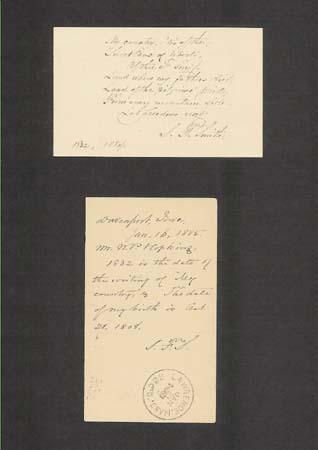 My country, 'tis of thee,
Sweet land of liberty,
Of thee I sing;
Land where my fathers died,
Land of the pilgrims' pride,
From every mountain side
Let freedom ring.
S. F. Smith.
1832,
Davenport, Iowa,
Jan. 15, 1885
Mr. Hopkins,
1832 is the date of
the writing of "My
country, &c. The date
of my birth is Oct
21. 1808.
S. F. S.
LAWRENCE, MASS.
REC'D
JAN